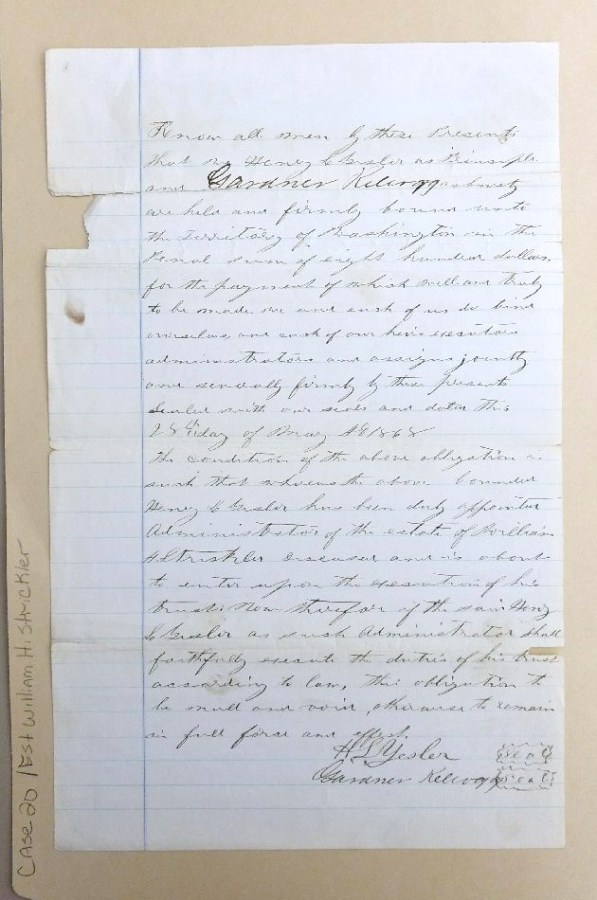 Know all men by these Presents
that we Henry L Yesler as Principle
and Gardner Kellogg as Surety
are held and firmly bound unto
the Territory of Washington in the
Penal sum of eight hundred dollars
for the payment of which well and truly
to be made we and each of us do bind
ourselves and each of our heirs executors
administrators and assigns jointly
and severally firmly by these presents
Sealed with our seals and dated this
28th day of May AD 1868
The condition of the above obligation is
such that whereas the above bounded
Henry L Yesler has been duly appointed
Administrator of the estate of William
H Strickler Deceased and is about
to enter upon the execution of his
trust. Now therefore if the said Henry
L Yesler as such Administrator shall
faithfully execute the duties of his trust
according to law, this obligation to
be null and void, otherwise to remain
in full force and effect.
H L Yesler seal
Gardner Kellogg seal
CASE 20 / Est William H. Strickler